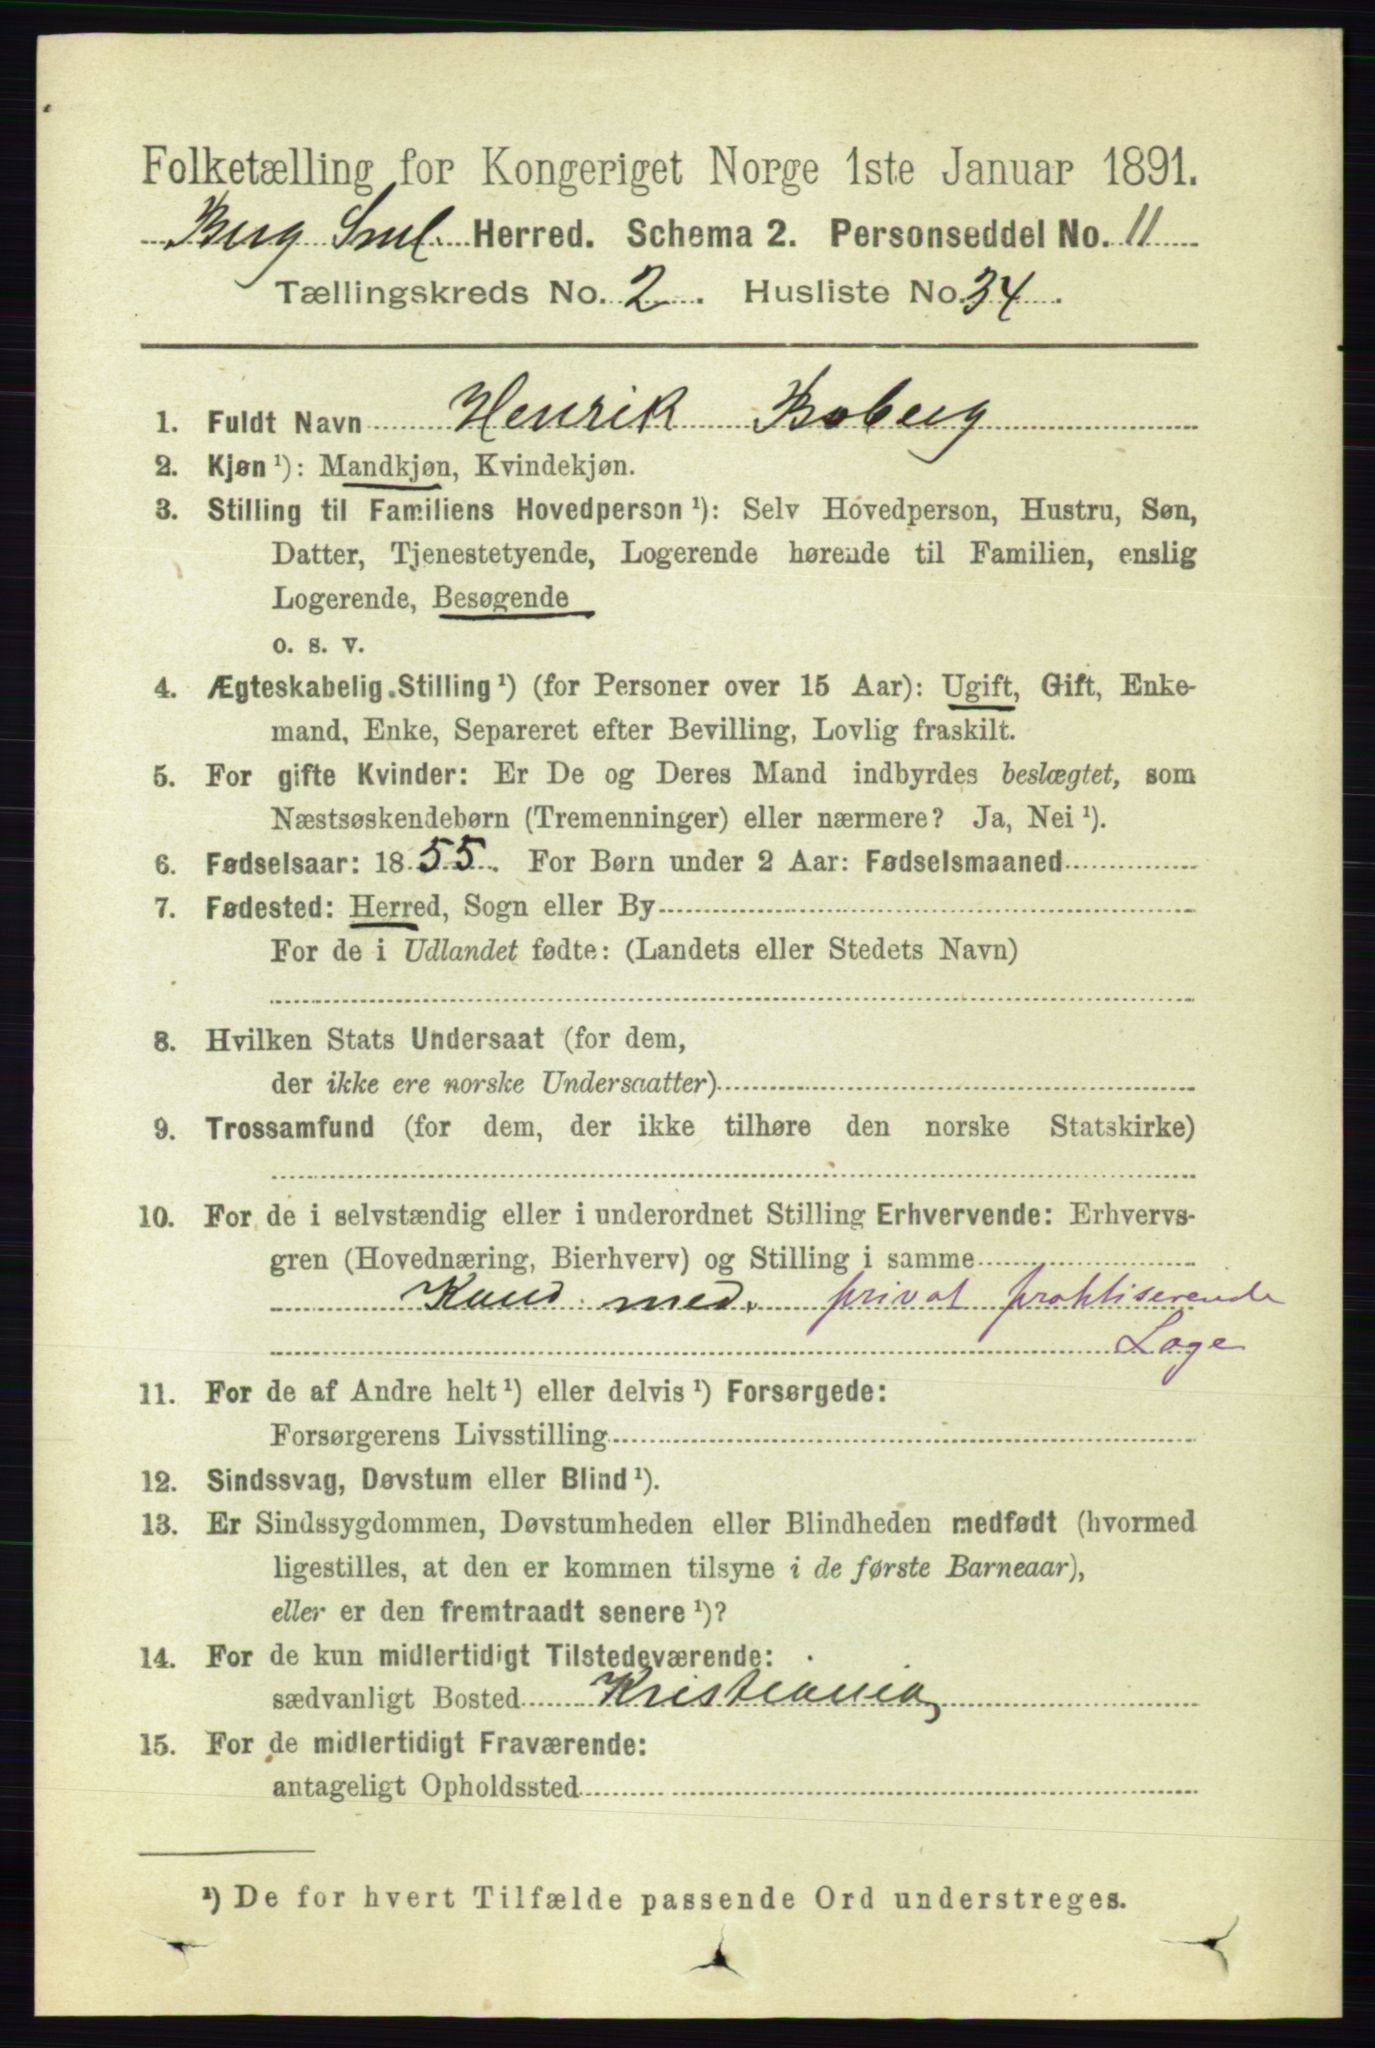 Folketælling for Kongeriget Norge 1ste Januar 1891.
Berg Sml. Herred. Schema 2. Personseddel No. 11
Tællingskreds No. 2. Husliste No. 34.
1. Fuldt Navn Henrik Boberg
2. Kjøn ¹): Mandkjøn, Kvindekjøn.
3. Stilling til Familiens Hovedperson ¹): Selv Hovedperson, Hustru, Søn,
Datter, Tjenestetyende, Logerende hørende til Familien, enslig
Logerende, Besøgende
o. s. v.
4. Ægteskabelig Stilling ¹) (for Personer over 15 Aar): Ugift, Gift, Enke-
mand, Enke, Separeret efter Bevilling, Lovlig fraskilt.
5. For gifte Kvinder: Er De og Deres Mand indbyrdes beslægtet, som
Næstsøskendebørn (Tremenninger) eller nærmere? Ja, Nei ¹).
6. Fødselsaar: 1855. For Børn under 2 Aar: Fødselsmaaned
7. Fødested: Herred, Sogn eller By
For de i Udlandet fødte: (Landets eller Stedets Navn)
8. Hvilken Stats Undersaat (for dem,
der ikke ere norske Undersaatter)
9. Trossamfund (for dem, der ikke tilhøre den norske Statskirke)
10. For de i selvstændig eller i underordnet Stilling Erhvervende: Erhvervs-
gren (Hovednæring, Bierhverv) og Stilling i samme
Kand. med. privat praktiserende
Læge
11. For de af Andre helt ¹) eller delvis ¹) Forsørgede:
Forsørgerens Livsstilling
12. Sindssvag, Døvstum eller Blind ¹).
13. Er Sindssygdommen, Døvstumheden eller Blindheden medfødt (hvormed
ligestilles, at den er kommen tilsyne i de første Barneaar),
eller er den fremtraadt senere ¹)?
14. For de kun midlertidigt Tilstedeværende:
sædvanligt Bosted Kristiania
15. For de midlertidigt Fraværende:
antageligt Opholdssted
¹) De for hvert Tilfælde passende Ord understreges.